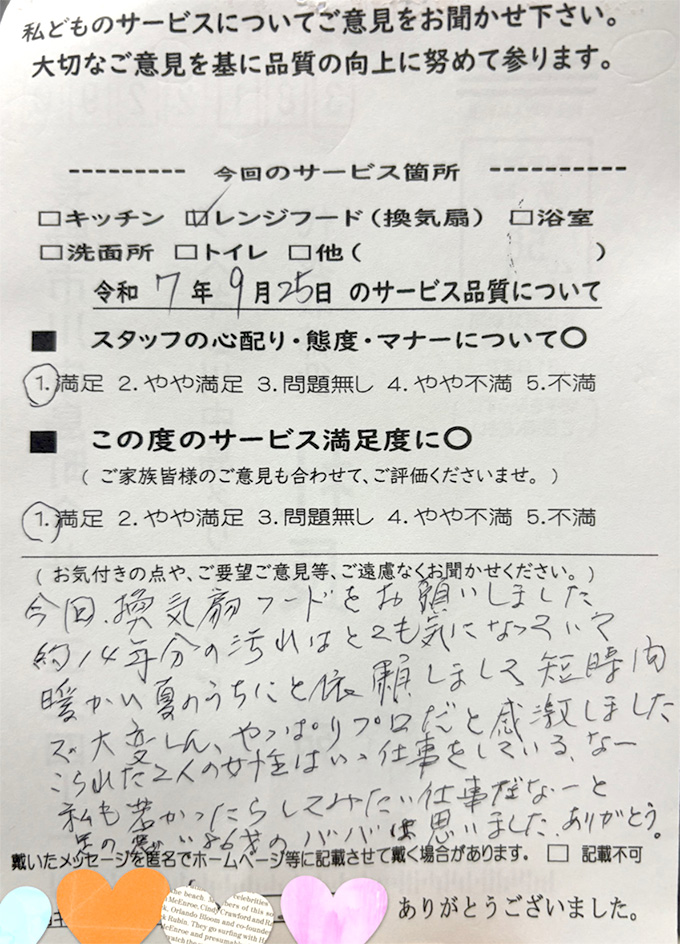 私どものサービスについてご意見をお聞かせ下さい。
大切なご意見を基に品質の向上に努めて参ります。
--------- 今回のサービス箇所 ----------
□キッチン ☑レンジフード(換気扇) □浴室
□洗面所 □トイレ □他( )
令和 7 年 9 月 25 日 のサービス品質について
■ スタッフの心配り・態度・マナーについて〇
1. 満足 2. やや満足 3. 問題無し 4. やや不満 5. 不満
■ この度のサービス満足度に〇
( ご家族皆様のご意見も合わせて、ご評価くださいませ。 )
1. 満足 2. やや満足 3. 問題無し 4. やや不満 5. 不満
( お気付きの点や、ご要望ご意見等、ご遠慮なくお聞かせください。)
今回、換気扇フードをお願いしました
約14年分の汚れはとても気になっていて
暖かい夏のうちにと依頼しまして 短時間
で大変しん、やっぱりプロだと感激しました
こられた2人の女性はいい仕事をしている、なー
私も若かったらしてみたい仕事だなーと
足の悪い86才のババは思いました、ありがとう。
戴いたメッセージを匿名でホームページ等に記載させて戴く場合があります。 □ 記載不可
the beach.
celebrities
McEnroe, Cindy Crawford and
Orlando Bloom and co-founder
Rubin. They go surfing with
McEnroe and
ありがとうございました。